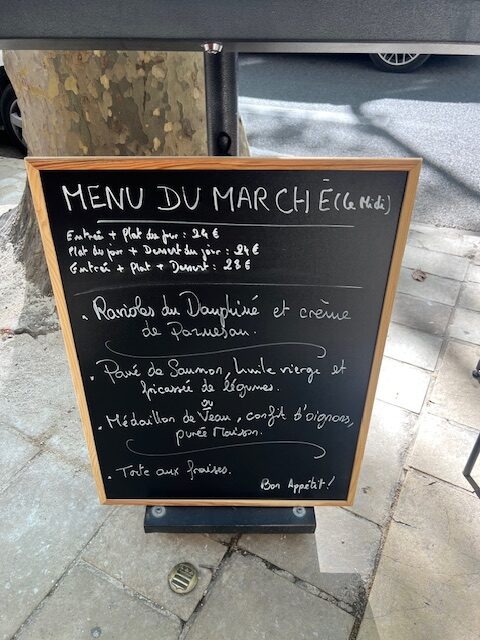 MENU DU MARCHÉ (Le Midi)
Entrée + Plat du jour : 24 €
Plat du jour + Dessert du jour : 24 €
Entrée + Plat + Dessert : 28 €
. Ravioles du Dauphiné et crème
de Parmesan.
. Pavé de Saumon, huile vierge et
fricassée de légumes.
ou
. Médaillon de Veau, confit d'oignons,
purée Maison.
. Tarte aux fraises.
Bon Appétit !